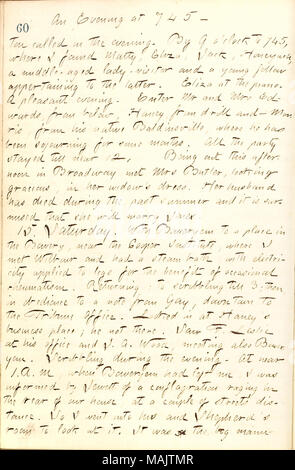 60
An Evening at 745 —
ton called in the evening. By 9 o'clock to 745,
where I found Matty, Eliza, Jack, Honeywell,
a middle-aged lady visitor and a young fellow
appertaining to the latter. Eliza at the piano.
A pleasant evening. Enter Mr and Mrs Ed-
wards, from below. Haney from drill and Mor-
ris from his native Baldinsville, where he has
been sojourning for some months. All the party
stayed till near 12. Being out this after-
noon in Broadway met Mrs Butler, looking
gracious, in her widow's dress. Her husband
has died during the past summer and it is sur-
mised that she will marry Jack.
15. Saturday. With Boweryem to a place in
the Bowery, near the Cooper Institute, where I
met Wilbur and had a steam bath with electri-
city applied to legs for the benefit of occasional
rheumatism. Returning: to scribbling till 3: then
in obedience to a note from Gay, down town to
the Tribune Office. Looked in at Haney's
business place; he not there. Saw F. Leslie
at his office and J. A. Wood: meeting also Bower-
yem. Scribbling during the evening. At near
1. A. M. when Boweryem had left me I was
informed by Jewett of a conflagration raging in
the rear of our house at a couple of streets dis-
tance. So I went into his and Shepherd's
room to look at it. It was the big manu-
alamy
Image ID: MAJTMR
www.alamy.com